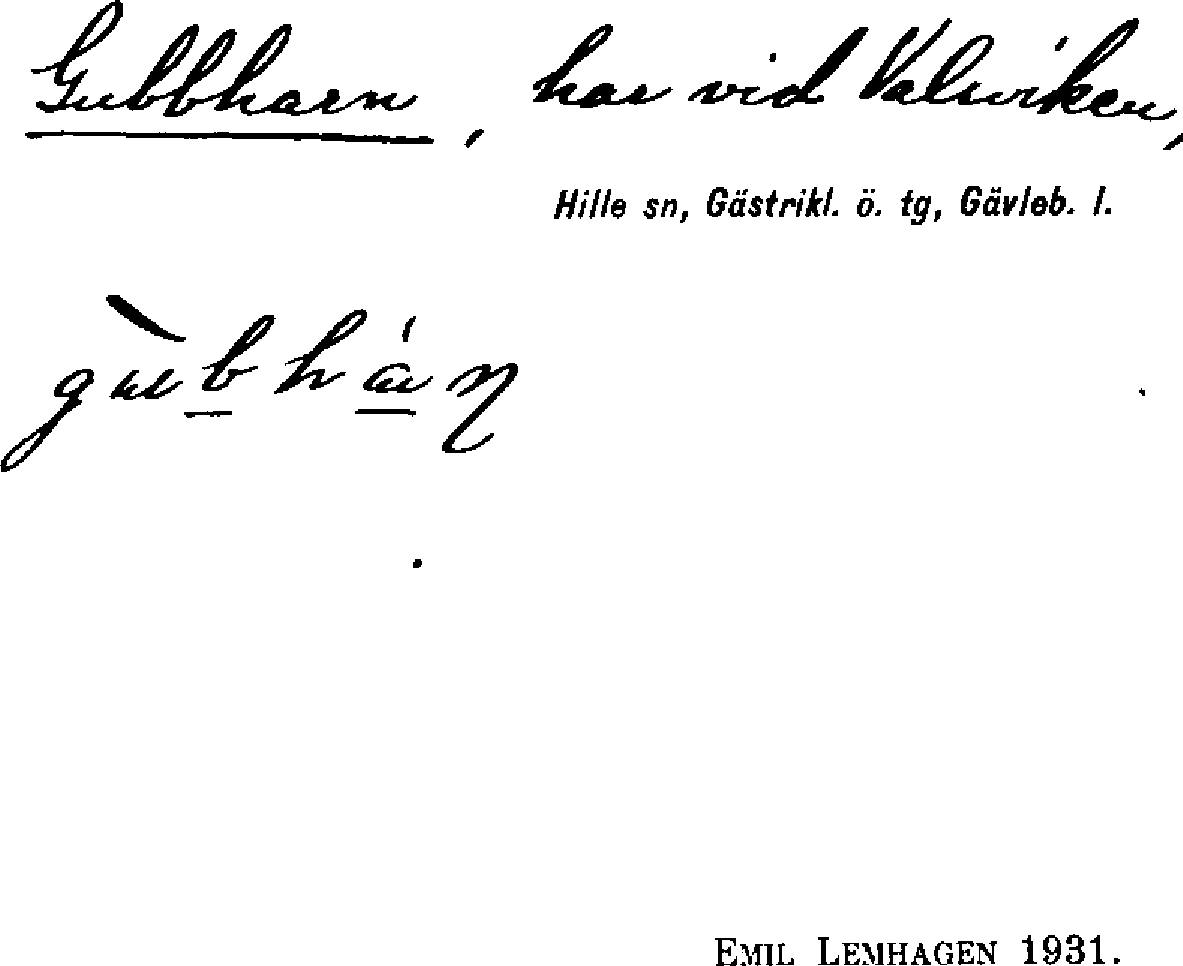 Gubbharn, har vid Valsviken,
Hille sn, Gästrikl. ö. tg, Gävleb. l.
EMIL LEMHAGEN 1931.